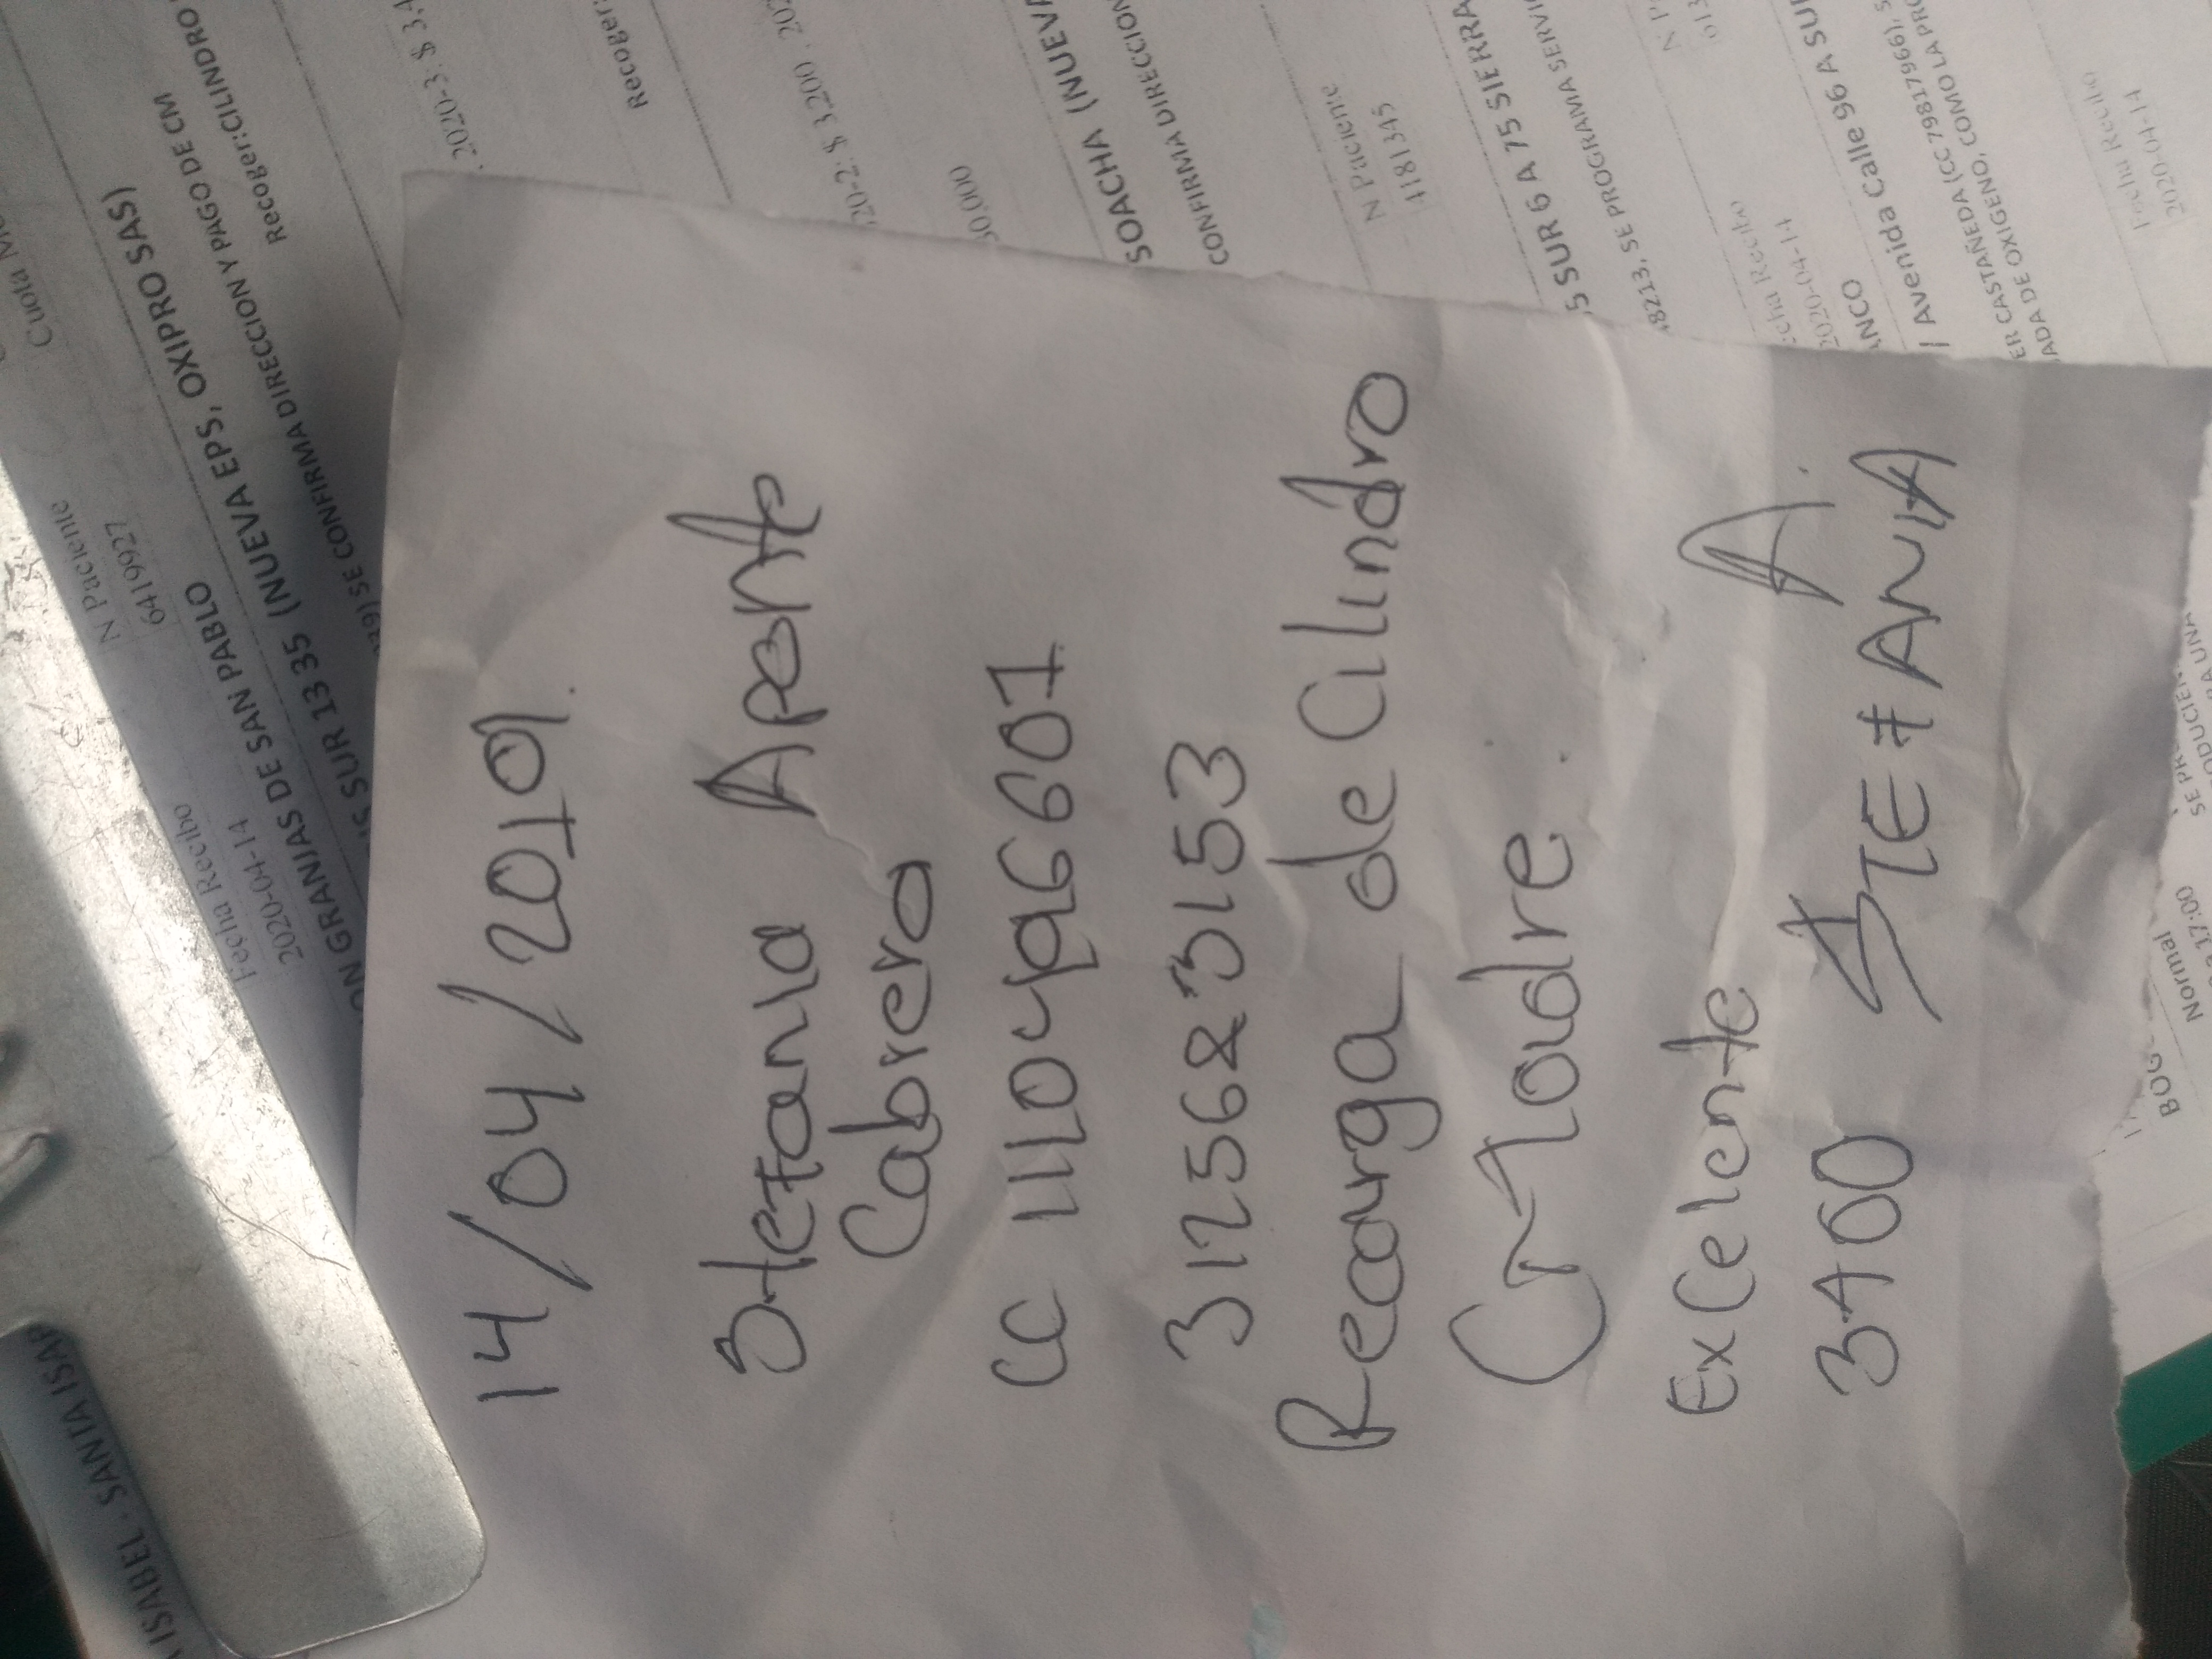 14/04/2019.
Stefania Aponte
Cabrera
CC 1110496601
3125683153
Recarga de Cilindro
Madre.
Excelente
3400 STEFANIA A.
Cuota Mo
N Paciente
6419927
Fecha Recibo
2020-04-14
ON GRANJAS DE SAN PABLO
IS SUR 13 35 (NUEVA EPS, OXIPRO SAS)
SE CONFIRMA DIRECCION Y PAGO DE CM
Recoger:CILINDRO
, 2020-3: $ 3,4
Recoger:
020-2: $ 3,200 , 202
30,000
SOACHA (NUEVA
CONFIRMA DIRECCION
N Paciente
41181345
5 SUR 6 A 75 SIERRA
48213, SE PROGRAMA SERVIC
N P
Fecha Recibo
2020-04-14
ANCO
Avenida Calle 96 A SUR
ER CASTAÑEDA (CC79817966), S
ADA DE OXIGENO, COMO LA PRO
Fecha Recibo
2020-04-14
A UNA
BOG
Normal
a 17:00
ISABEL - SANTA ISAB